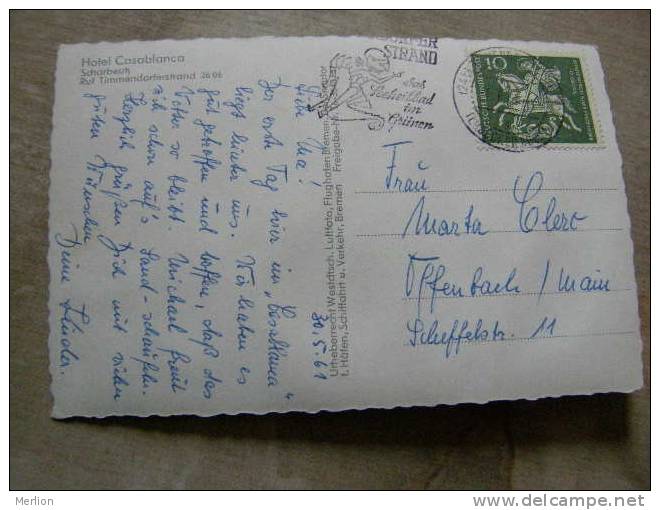 Hotel Casablanca
Scharbeutz
Ruf Timmendorferstrand 26 06
STRAND
das
Seeheilbad
im
Grünen
10
Urheberrecht Westdtsch. Luftfoto, Flughafen Bremen,
f. Häfen, Schiffahrt u. Verkehr, Bremen Freigabe-Nr.
30.5.61
Liebe Ma!
Der erste Tag hier im „Casablanca“
liegt hinter uns. Wir haben es
gut getroffen und hoffen, daß das
Wetter so bleibt. Michael freut
sich schon auf's Sand-schaufeln.
Herzlich grüßen Dich mit vielen
guten Wünschen
Deine Kinder.
Frau
Marta Clerc
Offenbach/Main
Scheffelstr. 11
Merlion
www.delcampe.net